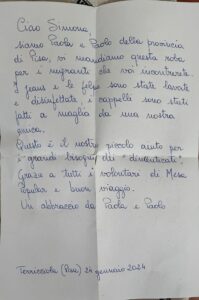 Ciao Simona,
siamo Paola e Paolo della provincia
di Pisa, vi mandiamo questa roba
per i migranti che voi incontrerete.
I jeans e le felpe sono state lavate
e disinfettate, i cappelli sono stati
fatti a maglia da una nostra
amica.
Questo è il nostro piccolo aiuto per
i grandi bisogni dei "dimenticati".
Grazie a tutti i volontari di Mesa
Popular e buon viaggio.
Un abbraccio da Paola e Paolo
Terricciola (Pisa) 24 gennaio 2024